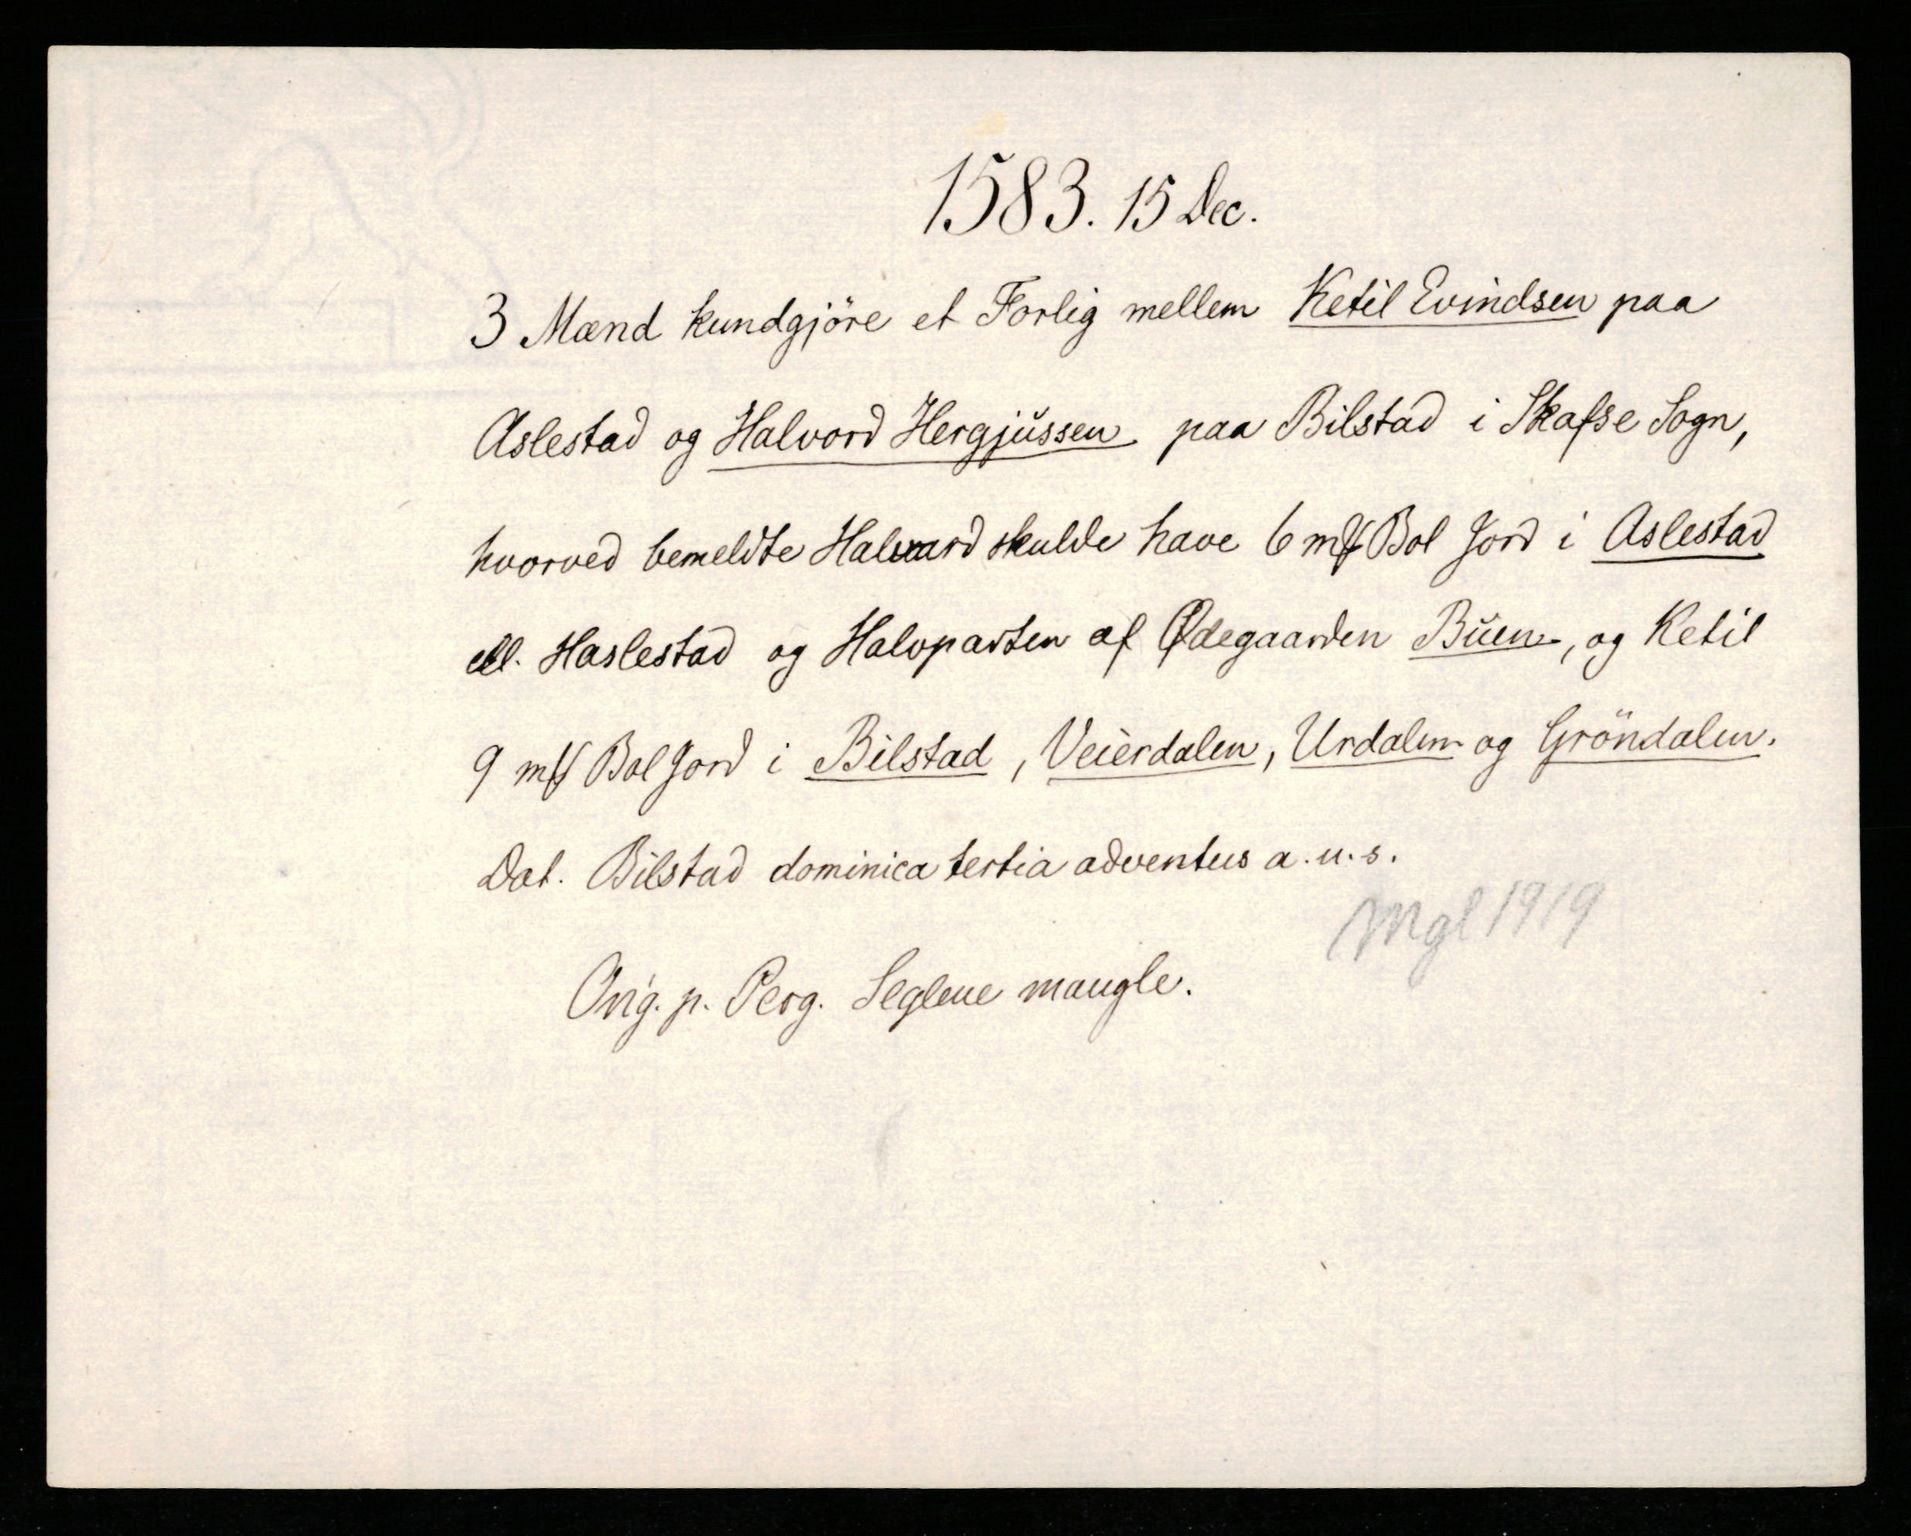 1583. 15 Dec.
3 Mænd kundgjöre et Forlig mellem Ketil Evindsen paa
Aslestad og Halvord Hergjŭssen paa Bilstad i Skafse Sogn,
hvorved bemeldte Halvard skulde have 6 mk Bol Jord i Aslestad
ell. Haslestad og Halvparten af Ødegaarden Bŭen, og Ketil
9 mk Bol Jord i Bilstad, Veierdalen, Urdalen og Gröndalen.
Dat. Bilstad dominica tertia adventus a. u. s.
Mgl 1919
Orig. p. Perg. Seglene mangle.